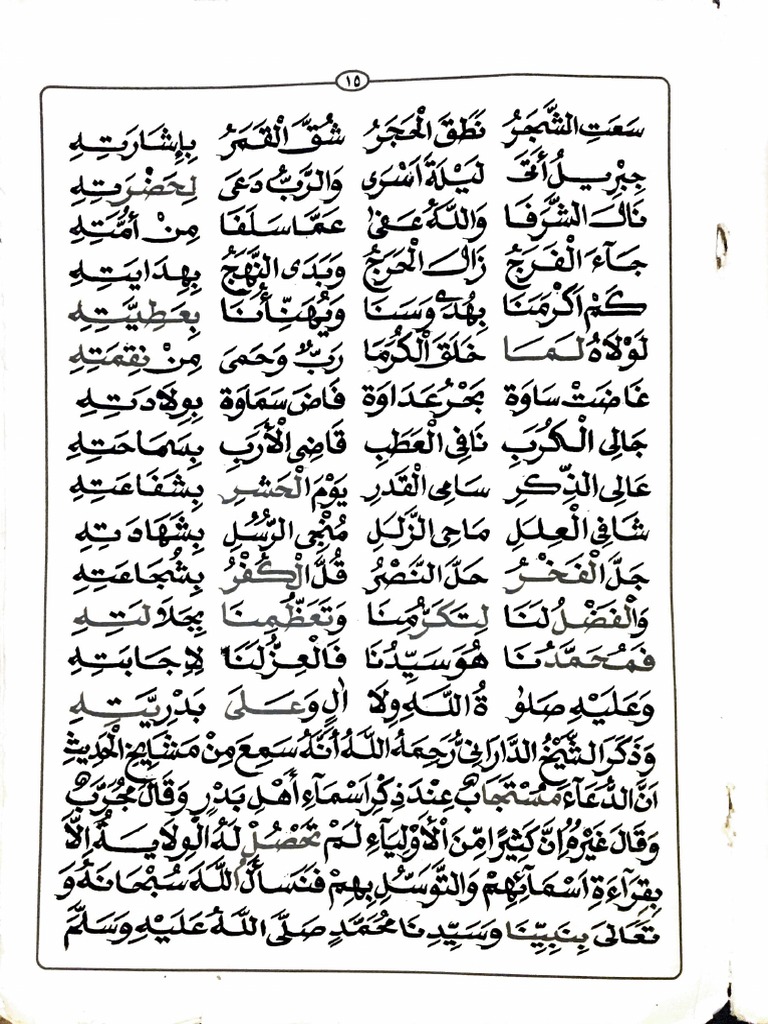 ١٥
سَعَتِ الشَّجَرُ نَطَقَ الْحَجَرُ شُقَّ الْقَمَرُ بِإِشَارَتِهِ
جِبْرِيلُ أَتَى لَيْلَةَ أَسْرَى وَالرَّبُّ دَعَى لِحَضْرَتِهِ
نَالَ الشَّرَفَا وَاللَّهُ عَفَى عَمَّا سَلَفَا مِنْ أُمَّتِهِ
جَآءَ الْفَرَجُ زَالَ الْحَرَجُ وَبَدَى النَّهَجُ بِهِدَايَتِهِ
كَمْ أَكْرَمَنَا بِهُدًى وَسَنَا وَيُهَنِّأُنَا بِعَطِيَّتِهِ
لَوْلَاهُ لَمَا خَلَقَ الْكُرَمَا رَبٌّ وَحَمَى مِنْ نِقْمَتِهِ
غَاضَتْ سَاوَة بَحْرُ عَدَاوَة فَاضَ سَمَاوَة بِوِلَادَتِهِ
جَالِي الْكُرَبِ نَافِي الْعَطَبِ قَاضِي الْأَرَبِ بِسَمَاحَتِهِ
عَالِي الذِّكْرِ سَامِي الْقَدْرِ يَوْمَ الْحَشْرِ بِشَفَاعَتِهِ
شَافِي الْعِلَلِ مَاحِي الزَّلَلِ مُنْجِي الرُّسُلِ بِشَهَادَتِهِ
جَلَّ الْفَخْرُ حَلَّ النَّصْرُ قُلَّ الْكُفْرُ بِشُجَاعَتِهِ
وَالْفَضْلُ لَنَا لِتَكَرُّمِنَا وَتَعَظُّمِنَا بِجَلَالَتِهِ
فَمُحَمَّدُنَا هُوَ سَيِّدُنَا فَالْعِزُّ لَنَا لِإِجَابَتِهِ
وَعَلَيْهِ صَلٰو ةُ اللَّهِ وِلَا اٰلٍ وَعَلَى بَدْرِيَّتِهِ
وَذَكَرَ الشَّيْخُ الدَّارَانِيُّ رَحِمَهُ اللَّهُ أَنَّهُ سَمِعَ مِنْ مَشَايِخِ الْحَدِيثِ
اَنَّ الدُّعَآءَ مُسْتَجَابٌ عِنْدَ ذِكْرِ اَسْمَآءِ أَهْلِ بَدْرٍ وَقَالَ مُجَرَّبٌ
وَقَالَ غَيْرُهُ اِنَّ كَثِيْرًا مِّنَ الْأَوْلِيَآءِ لَمْ تَحْصُلْ لَهُ الْوِلَايَةُ اِلَّا
بِقِرَآءَةِ اَسْمَآئِهِمْ وَالتَّوَسُّلِ بِهِمْ فَنَسْأَلُ اللَّهَ سُبْحَانَهُ وَ
تَعَالَى بِنَبِيِّنَا وَسَيِّدِنَا مُحَمَّدٍ صَلَّى اللَّهُ عَلَيْهِ وَسَلَّمَ